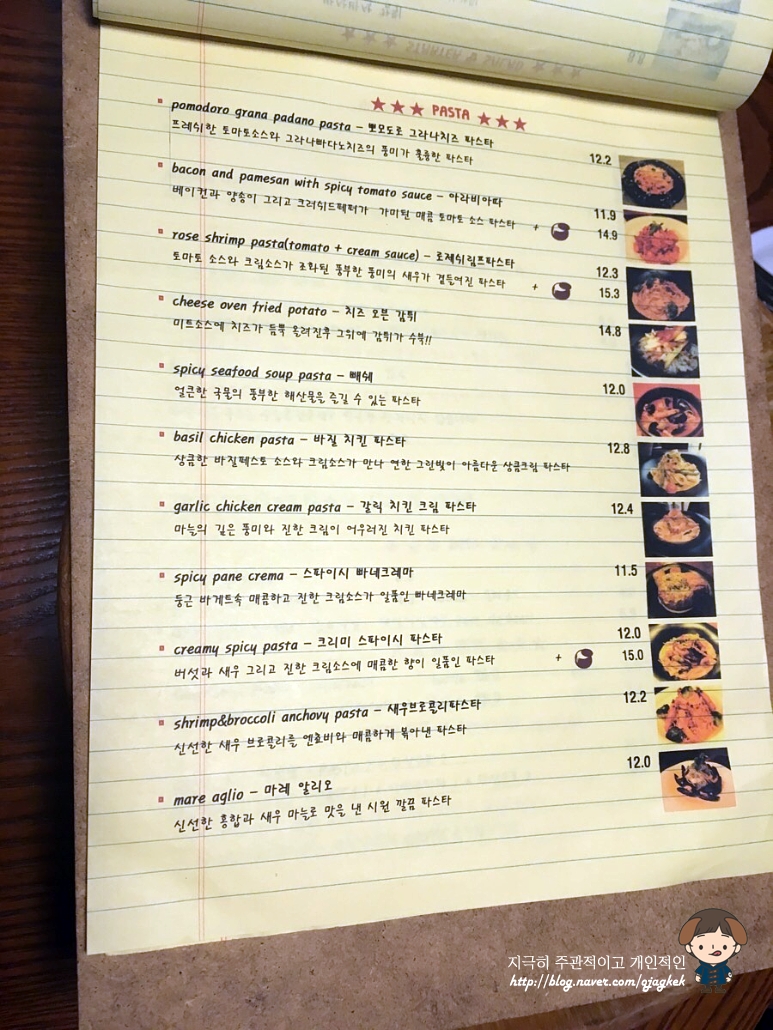 ★★★ PASTA ★★★
pomodoro grana padano pasta –뽀모도로 그라나치즈 파스타
프레쉬한 토마토소스와 그라나빠다노치즈의 풍미가 훌륭한 파스타 12.2
bacon and pamesan with spicy tomato sauce – 아라비아따 11.9
베이컨과 양송이 그리고 크러쉬드페퍼가 가미된 매콤 토마토 소스 파스타 + 14.9
rose shrimp pasta(tomato + cream sauce) – 로제쉬림프파스타 12.3
토마토 소스와 크림소스가 조화된 풍부한 풍미의 새우가 곁들여진 파스타 + 15.3
cheese oven fried potato – 치즈 오븐 감튀 14.8
미트소스에 치즈가 듬뿍 올려진후 그위에 감튀가 수북!!
spicy seafood soup pasta – 빼쉐 12.0
얼큰한 국물의 풍부한 해산물을 즐길 수 있는 파스타
basil chicken pasta – 바질 치킨 파스타 12.8
상큼한 바질페스토 소스와 크림소스가 만나 연한 그린빛이 아름다운 상큼크림 파스타
garlic chicken cream pasta – 갈릭 치킨 크림 파스타 12.4
마늘의 깊은 풍미와 진한 크림이 어우러진 치킨 파스타
spicy pane crema – 스파이시 빠네크레마 11.5
둥근 바게트속 매콤하고 진한 크림소스가 일품인 빠네크레마
creamy spicy pasta – 크리미 스파이시 파스타 12.0
버섯과 새우 그리고 진한 크림소스에 매콤한 향이 일품인 파스타 + 15.0
shrimp&broccoli anchovy pasta – 새우브로콜리파스타 12.2
신선한 새우 브로콜리를 엔쵸비와 매콤하게 볶아낸 파스타
mare aglio – 마레 알리오 12.0
신선한 홍합과 새우 마늘로 맛을 낸 시원 깔끔 파스타
지극히 주관적이고 개인적인
http://blog.naver.com/gjagkek